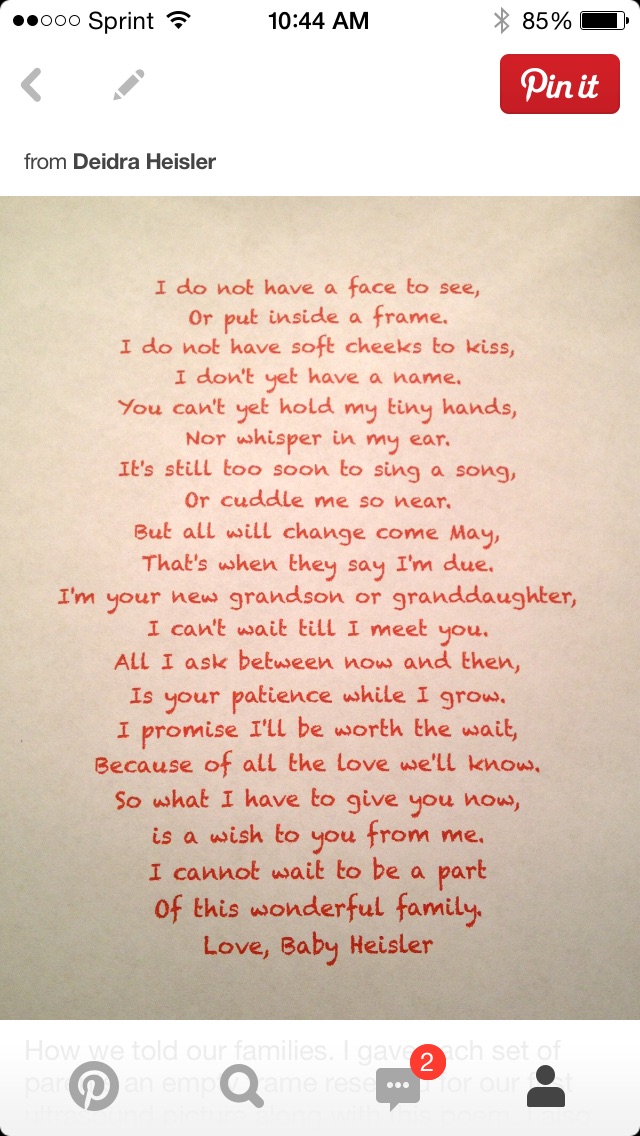 Sprint 10:44 AM 85%
Pin it
from Deidra Heisler
I do not have a face to see,
Or put inside a frame.
I do not have soft cheeks to kiss,
I don't yet have a name.
You can't yet hold my tiny hands,
Nor whisper in my ear.
It's still too soon to sing a song,
Or cuddle me so near.
But all will change come May,
That's when they say I'm due.
I'm your new grandson or granddaughter,
I can't wait till I meet you.
All I ask between now and then,
Is your patience while I grow.
I promise I'll be worth the wait,
Because of all the love we'll know.
So what I have to give you now,
is a wish to you from me.
I cannot wait to be a part
Of this wonderful family.
Love, Baby Heisler
How we told our families. I gave each set of
an empty frame for our
2